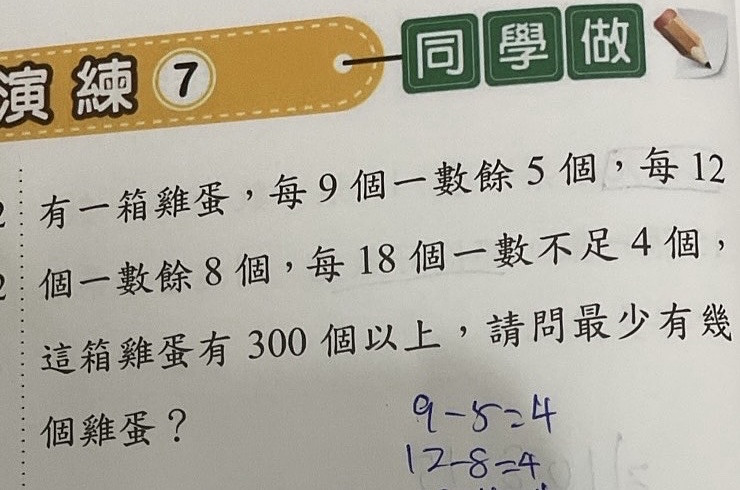 演練7 同學做
有一箱雞蛋，每9個一數餘5個，每12
個一數餘8個，每18個一數不足4個，
這箱雞蛋有300個以上，請問最少有幾
個雞蛋？
9-5=4
12-8=4